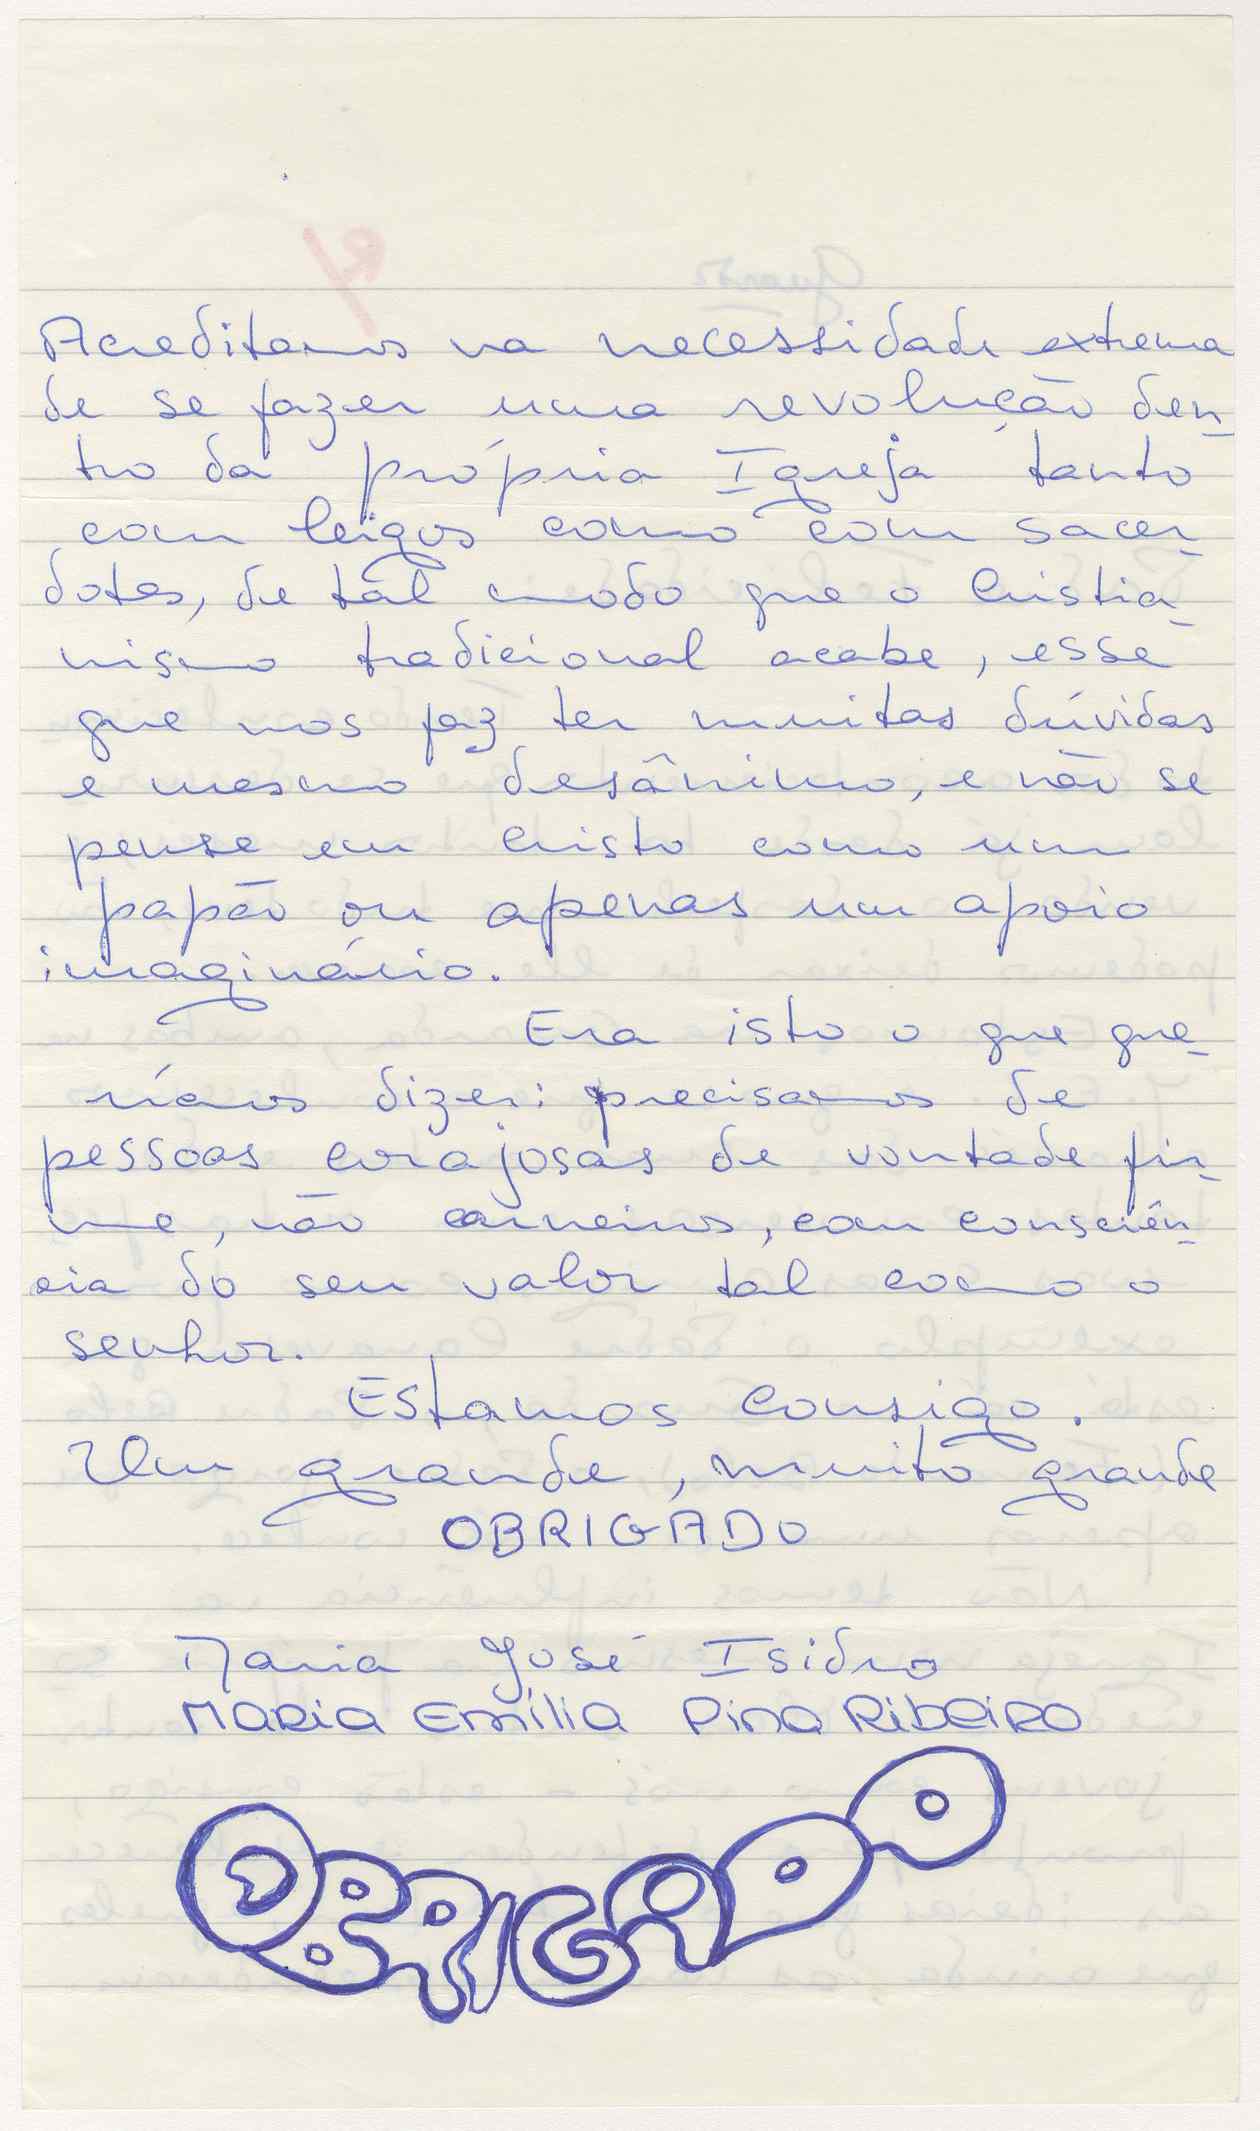 Acreditamos na necessidade extrema
de se fazer uma revolução den-
tro da própria Igreja tanto
com leigos como com sacer-
dotes, de tal modo que o Cristia-
nismo tradicional acabe, esse
que nos faz ter muitas dúvidas
e mesmo desânimo, e não se
pense em Cristo como um
papão ou apenas um apoio
imaginário.
Era isto o que que-
ríamos dizer: precisamos de
pessoas corajosas de vontade fir-
me, não carneiros, com consciên-
cia do seu valor tal como o
senhor.
Estamos consigo.
Um grande, muito grande
OBRIGADO
Maria José Isidro
MARIA EMÍLIA PINA RIBEIRO
OBRIGADO